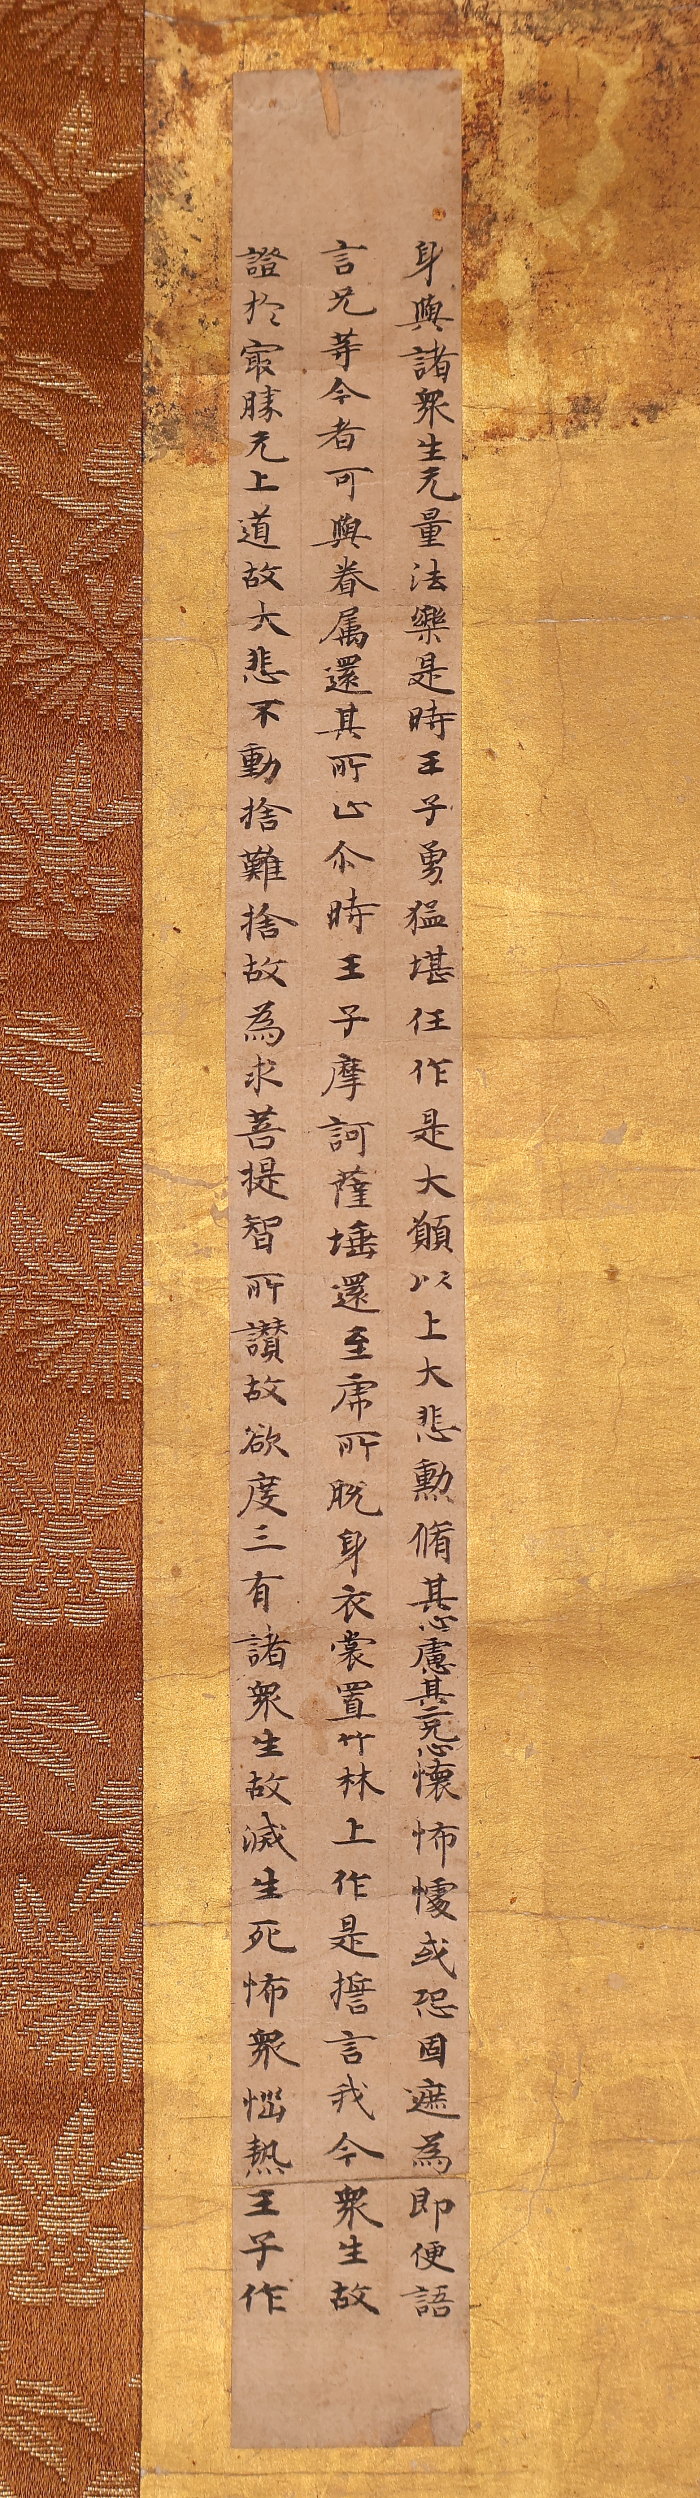 身與諸衆生无量法樂是時王子勇猛堪任作是大願以上大悲勳脩其心慮其二兄心懷怖懅或恐固遮為即便語
言兄等今者可與眷属還其所止尒時王子摩訶薩埵還至虎所脱身衣裳置竹林上作是誓言我今衆生故
證於冣勝无上道故大悲不動捨難捨故為求菩提智所讃故欲度三有諸衆生故滅生死怖衆惱熱王子作